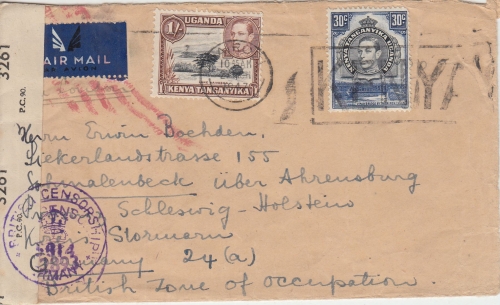 AIR MAIL
PAR AVION
UGANDA
1/-
KENYA TANGANYIKA
30c
30c
KENYA TANGANYIKA UGANDA
KENYA
3261
P.C. 90.
3261
P.C. 90.
Herrn Erwin Boehden,
Siekerlandstrasse 155
Schmalenbeck über Ahrensburg
Schleswig-Holstein
Stormarn
Germany 24 (a)
British Zone of Occupation
BRITISH CENSORSHIP
GERMANY